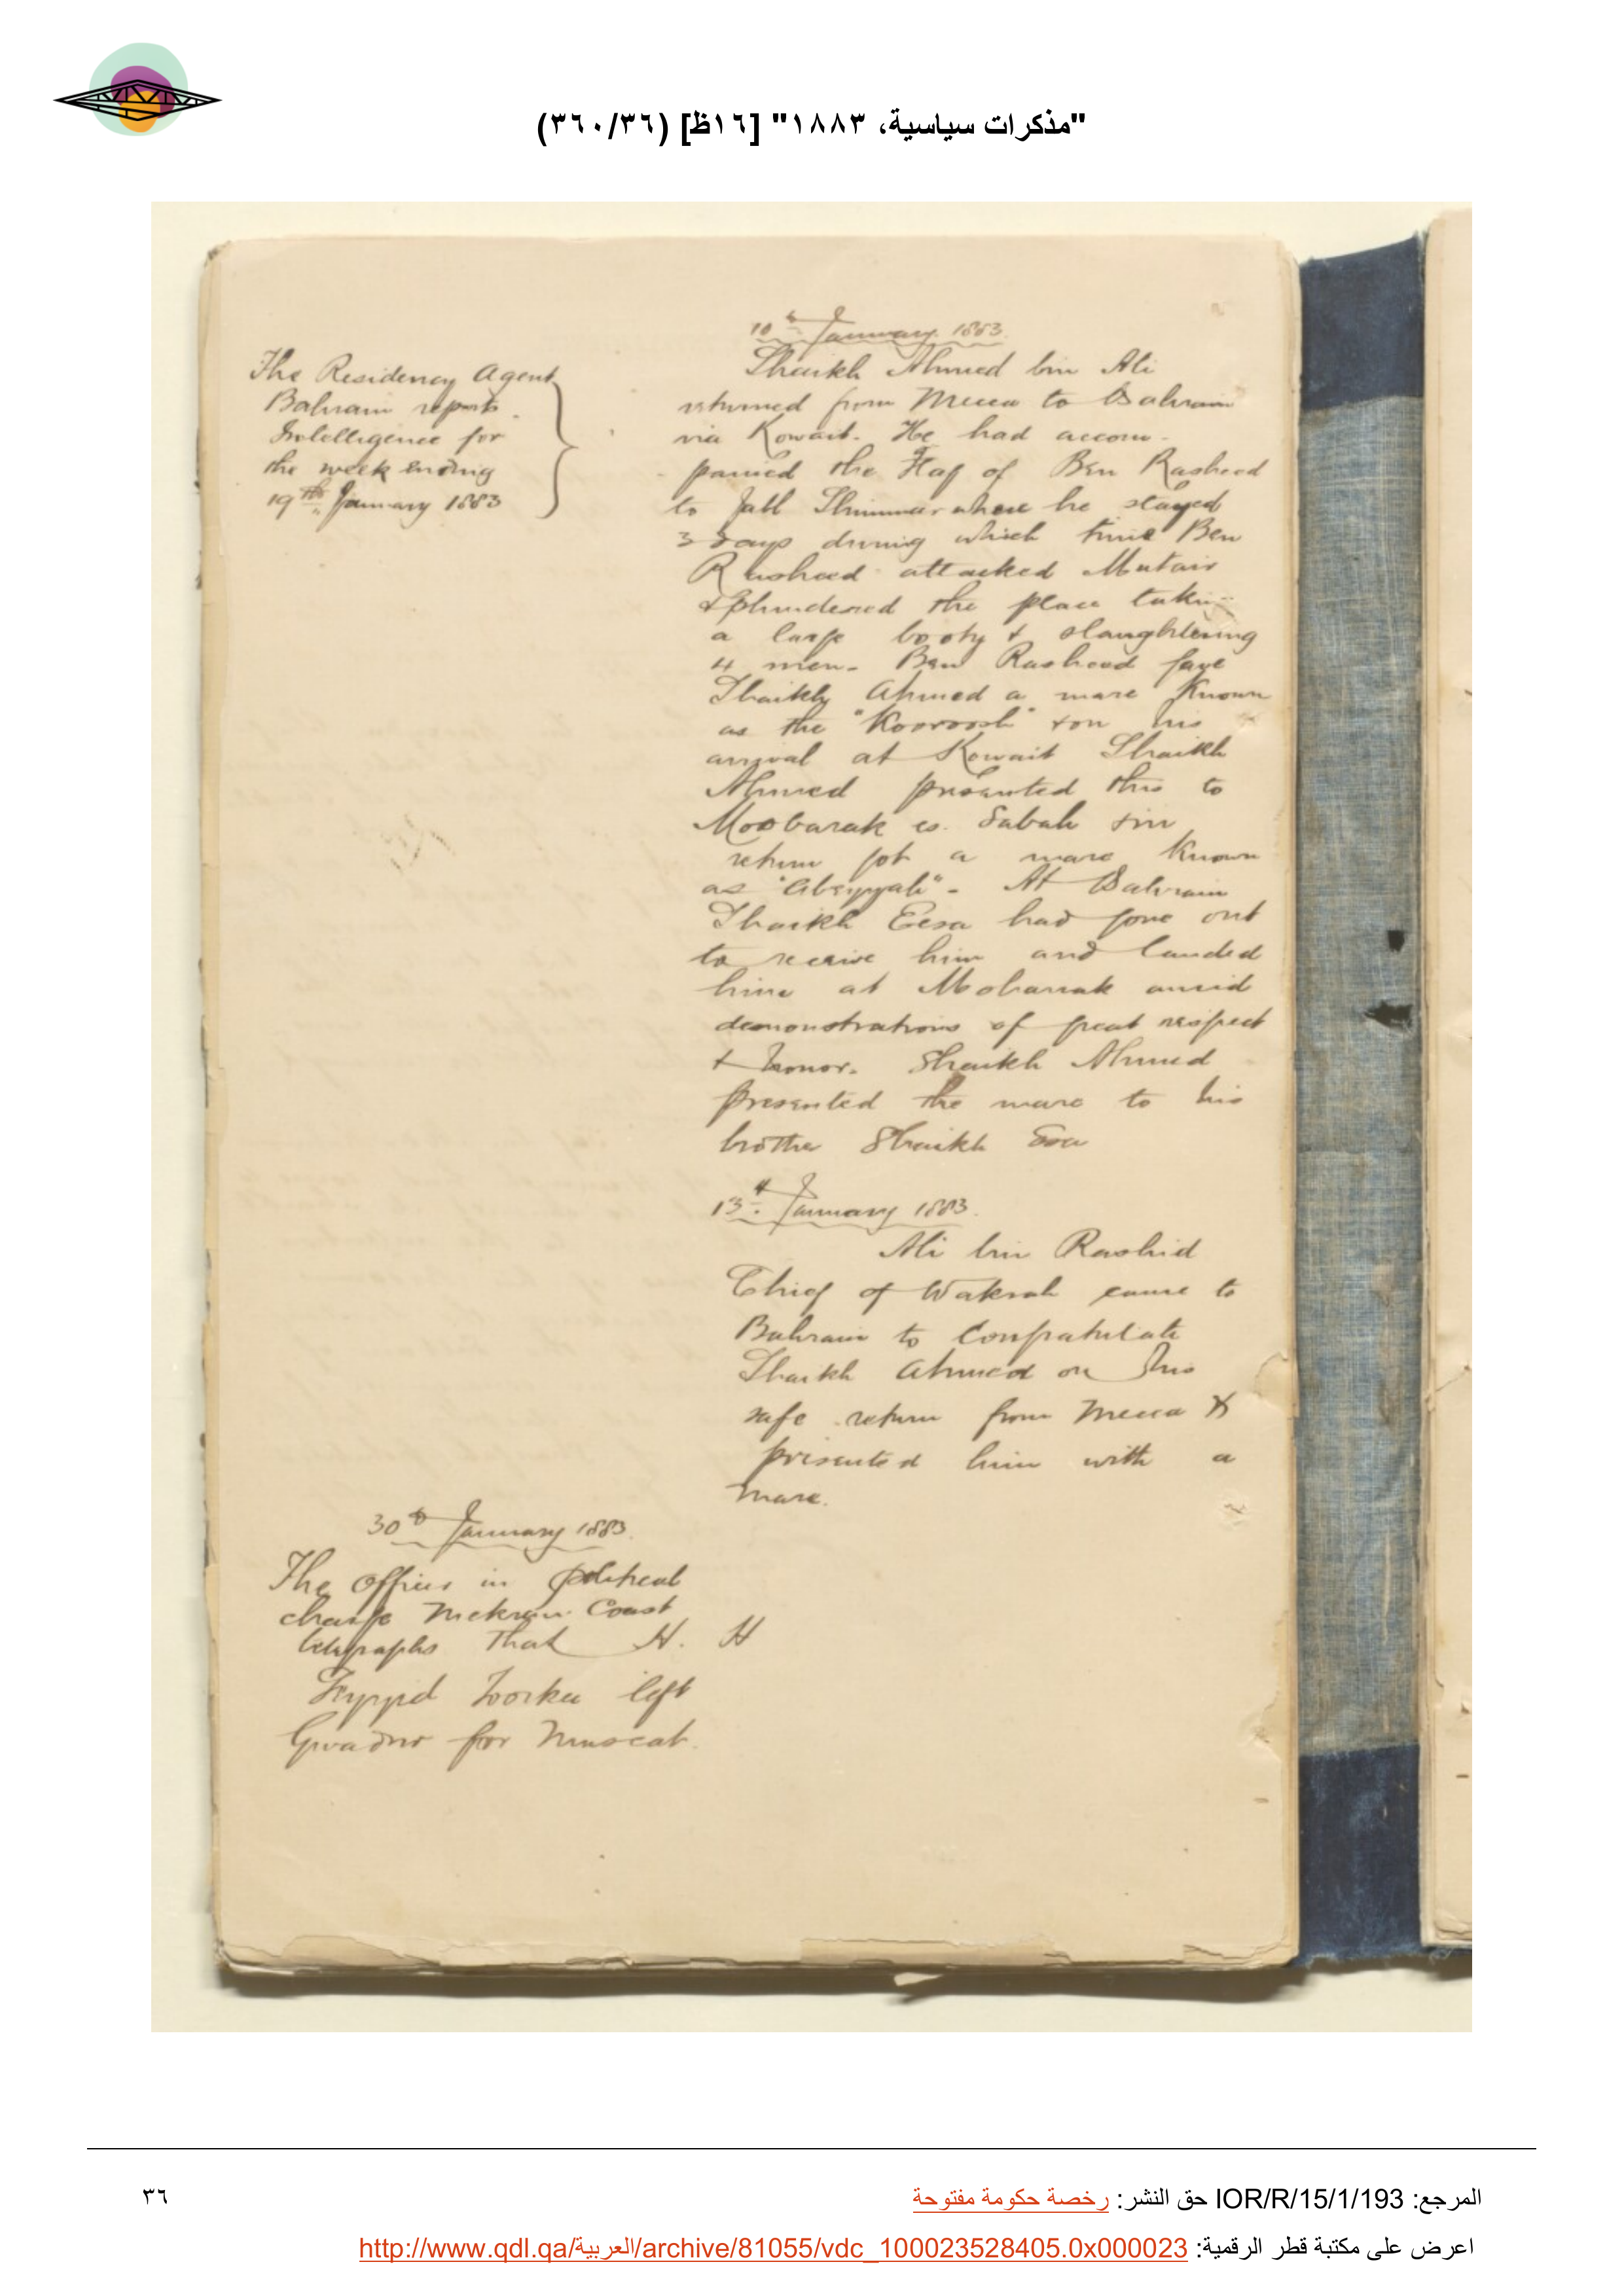 "مذكرات سياسية، ١٨٨٣" [١٦ظ] (٣٦٠/٣٦)
The Residency Agent
Bahrain reports
Intelligence for
the week ending
19th January 1883
10th January 1883.
Shaikh Ahmed bin Ali
returned from Mecca to Bahrain
via Kowait. He had accom-
panied the Haj of Ben Rasheed
to Jabl Shimmar where he stayed
3 days during which time Ben
Rasheed attacked Mutair
& plundered the place taking
a large booty & slaughtering
4 men. Ben Rasheed gave
Shaikh Ahmed a mare known
as the "Kooroosh" & on his
arrival at Kowait Shaikh
Ahmed presented this to
Moobarak es. Sabah & in
return got a mare known
as "Abeyyah". At Bahrain
Shaikh Eesa had gone out
to receive him and landed
him at Moharrak amid
demonstrations of great respect
& honor. Shaikh Ahmed
presented the mare to his
brother Shaikh Esa
13th January 1883.
Ali bin Rashid
Chief of Wakrah came to
Bahrain to Congratulate
Shaikh Ahmed on his
safe return from Mecca &
presented him with a
mare.
30th January 1883.
The Officer in political
charge Mekran Coast
telegraphs that H. H
Syyid Toorkee left
Gwadur for Muscat.
المرجع: IOR/R/15/1/193 حق النشر: رخصة حكومة مفتوحة
٣٦
اعرض على مكتبة قطر الرقمية: http://www.qdl.qa/العربية/archive/81055/vdc_100023528405.0x000023